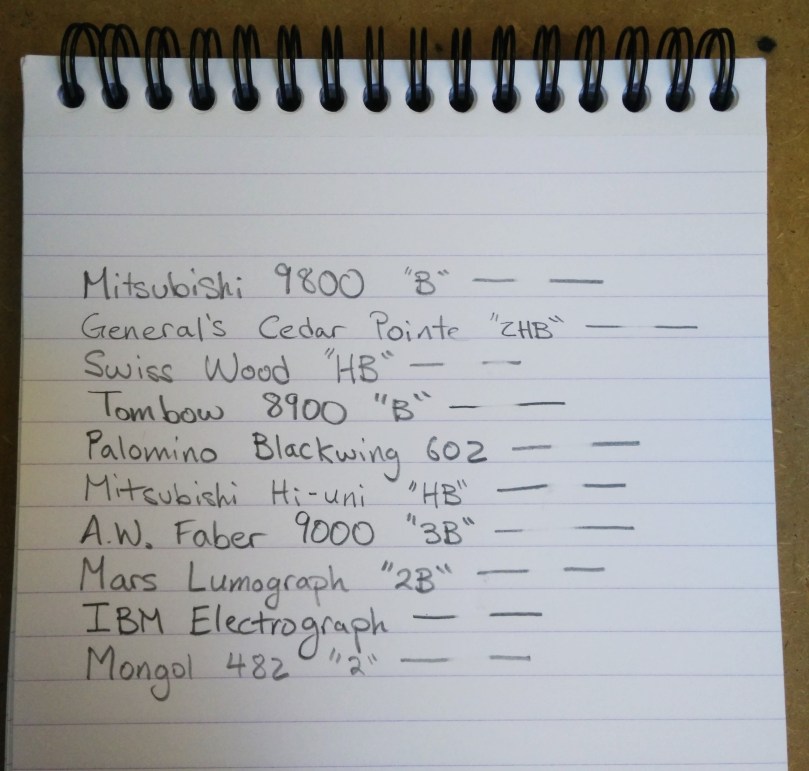 Mitsubishi 9800 "B" — —
General's Cedar Pointe "2HB" — —
Swiss Wood "HB" — —
Tombow 8900 "B" — —
Palomino Blackwing 602 — —
Mitsubishi Hi-uni "HB" — —
A.W. Faber 9000 "3B" — —
Mars Lumograph "2B" — —
IBM Electrograph — —
Mongol 482 "2" — —